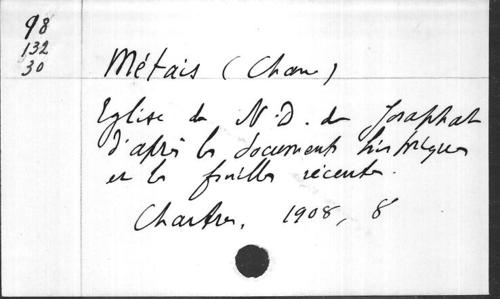 98
132
30
Métais (Chan)
Eglise de N.D. de Josaphat
d'après les documents historiques
et les fouilles récentes.
Chartres, 1908, 8